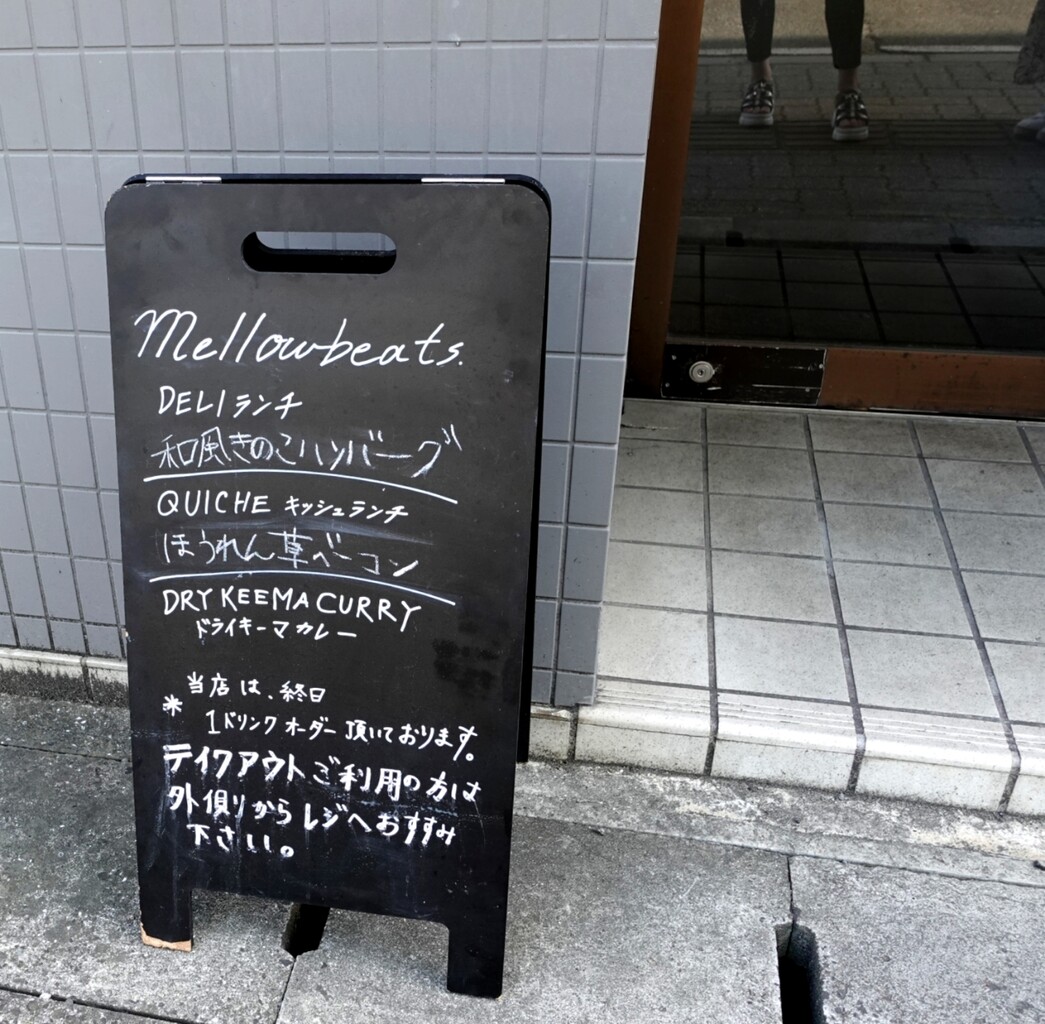 Mellowbeats.
DELI ランチ
和風きのこハンバーグ
QUICHE キッシュランチ
ほうれん草ベーコン
DRY KEEMA CURRY
ドライキーマカレー
当店は、終日
* 1ドリンクオーダー頂いております。
テイクアウトご利用の方は
外側からレジへおすすみ
下さい。